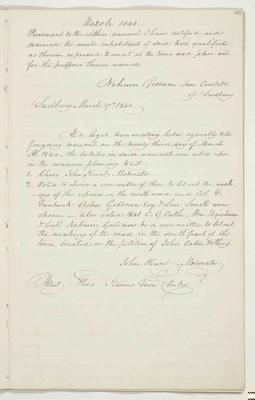 March 1840
Pursuant to the within warrant I have notified and
warned the male inhabitants of said town qualified
as therein expressed to meet at the time and place and
for the purposes therein named
Nahum Goodnow Constable
of Sudbury
Sudbury March 17th 1840
At a legal town meeting held agreeably to the
foregoing warrant on the twenty third day of March
AD. 1840 the articles in said warrant were acted upon
in the manner following Viz
1. Chose John Hunt Moderator
2. Voted to choose a committee of three to let out the mak-
ing of the repairs on the north road and Col. D.
Asher Goodnow Esq & Levi Smith were
chosen — also voted that C. G. Cutler Wm. Brigham
& Nahum Goodnow be a committee to let out
the making of the road on the south part of the
town located on the petition of John Eaton & others
John Hunt Moderator
Attest Thos Stearns Town Clerk